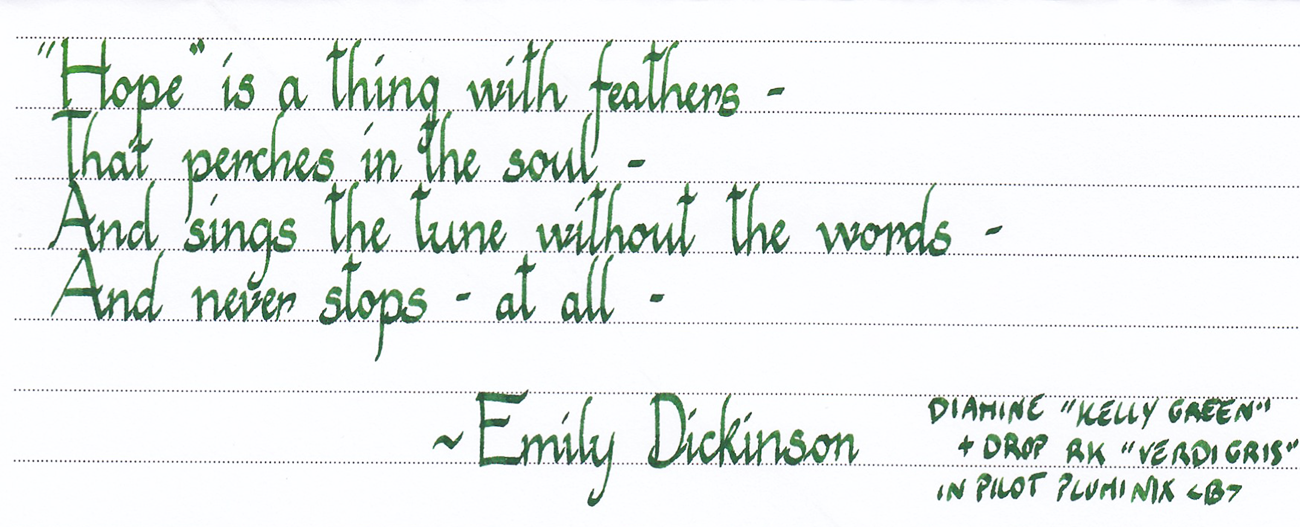 "Hope" is a thing with feathers -
That perches in the soul -
And sings the tune without the words -
And never stops - at all -
~ Emily Dickinson
DIAMINE "KELLY GREEN"
+ DROP RK "VERDIGRIS"
IN PILOT PLUMINIX <B>